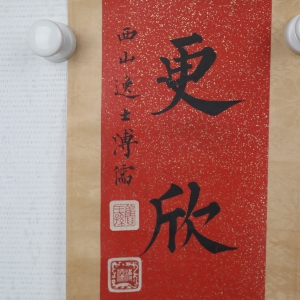 更欣
西山逸士溥儒